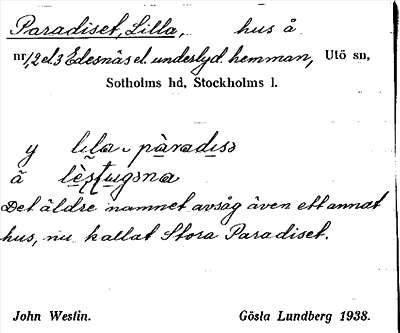 Paradiset, Lilla, hus å
nr 1,2 el. 3 Edesnäs el. underlyd. hemman, Utö sn,
Sotholms hd, Stockholms l.
y lıla - pàradıss
ä lèstugɔna
Det äldre namnet avsåg även ett annat
hus, nu kallat Stora Paradiset.
John Westin. Gösta Lundberg 1938.